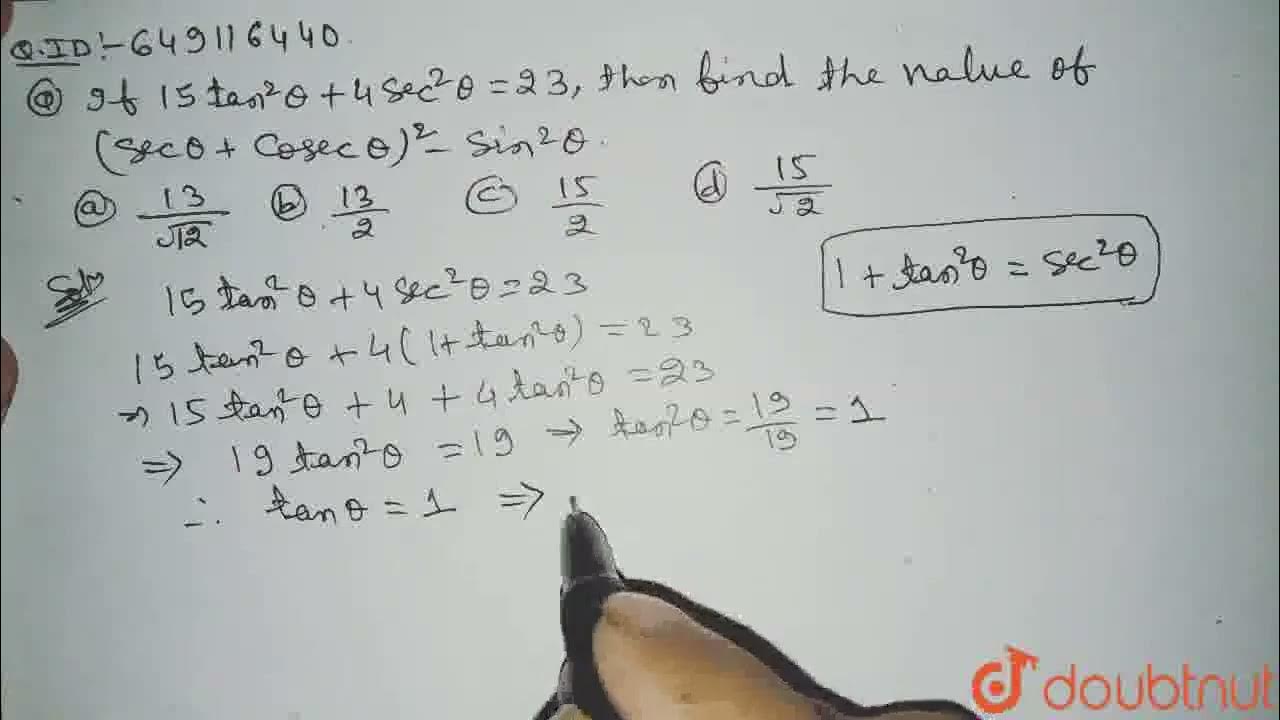 Q.ID:-649116440.
Q If 15 tan²θ + 4 sec²θ = 23, then find the value of
(secθ + Cosec θ)² - Sin²θ.
a 13/√12 b 13/2 c 15/2 d 15/√2
1 + tan²θ = sec²θ
Soln 15 tan²θ + 4 sec²θ = 23
15 tan²θ + 4(1 + tan²θ) = 23
⇒ 15 tan²θ + 4 + 4 tan²θ = 23
⇒ 19 tan²θ = 19 → tan²θ = 19/19 = 1
∴ tan θ = 1 ⇒
doubtnut